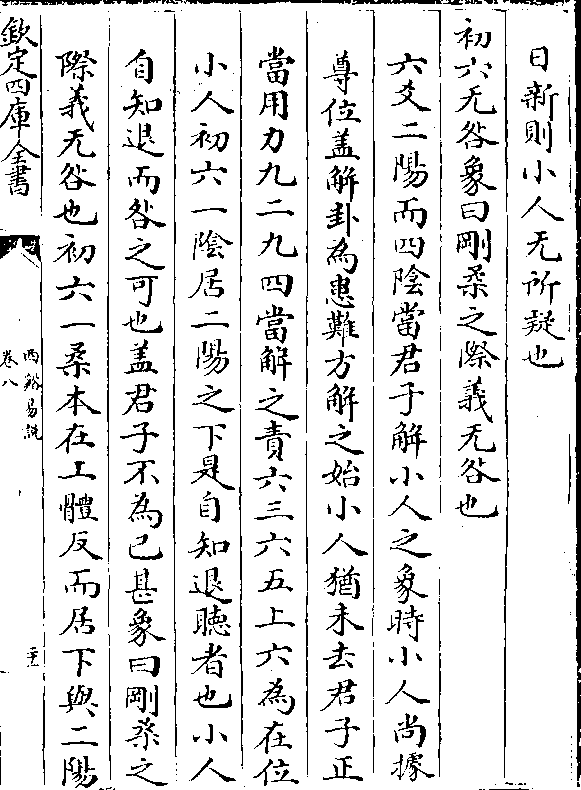 日新則小人无所疑也
初六无咎象曰剛柔之際義无咎也
六爻二陽而四陰當君子解小人之象時小人尚據
尊位盖解卦為患難方解之始小人猶未去君子正
當用力九二九四當解之責六三六五上六為在位
小人初六一陰居二陽之下是自知退聽者也小人
自知退而咎之可也盖君子不為已甚象曰剛柔之
際義无咎也初六一柔本在上體反而居下與二陽
欽定四庫全書
西谿易說
卷八